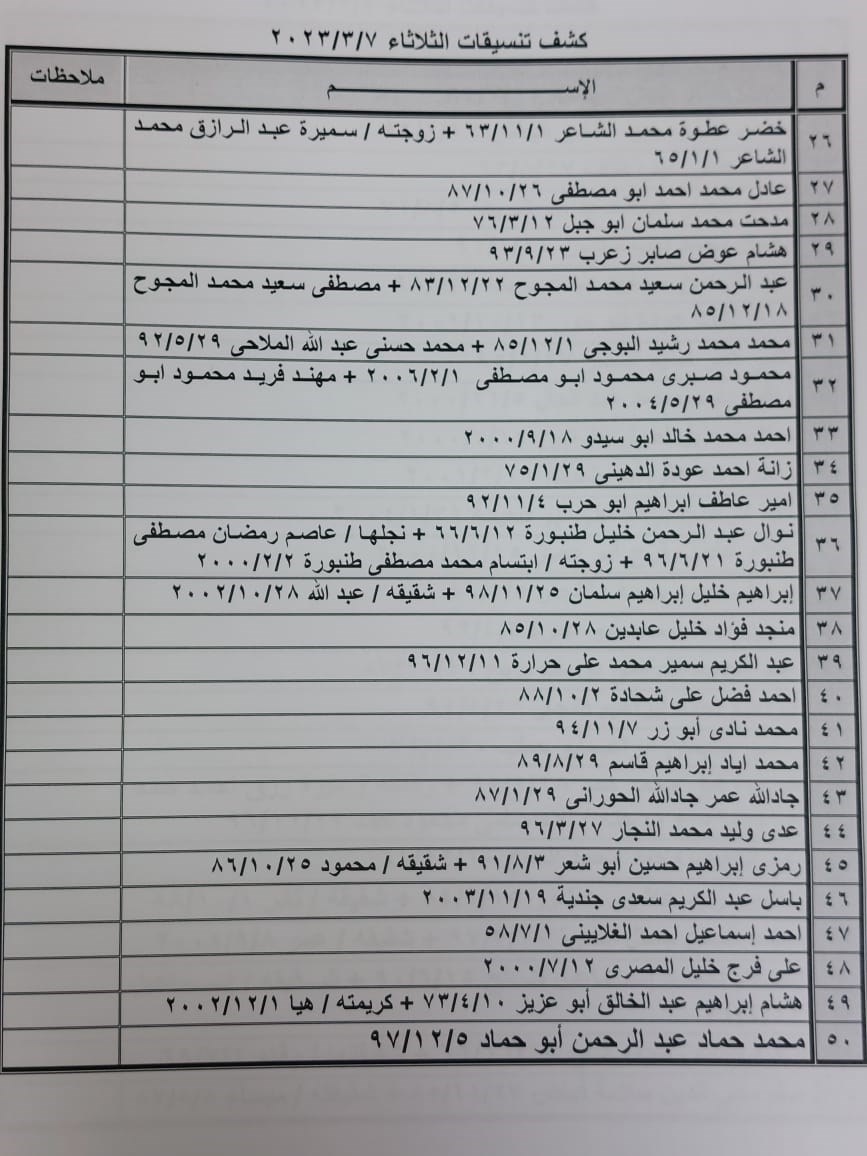 كشف تنسيقات الثلاثاء ٢٠٢٣/٣/٧
م الإســـــــم ملاحظات
٢٦ خضر عطوة محمد الشاعر ٦٣/١١/١ + زوجته / سميرة عبد الرازق محمد
الشاعر ٦٥/١/١
٢٧ عادل محمد احمد ابو مصطفى ٨٧/١٠/٢٦
٢٨ مدحت محمد سلمان ابو جبل ٧٦/٣/١٢
٢٩ هشام عوض صابر زعرب ٩٣/٩/٢٣
٣٠ عبد الرحمن سعيد محمد المجوح ٨٣/١٢/٢٢ + مصطفى سعيد محمد المجوح
٨٥/١٢/١٨
٣١ محمد محمد رشيد البوجى ٨٥/١٢/١ + محمد حسنى عبد الله الملاحى ٩٢/٥/٢٩
٣٢ محمود صبرى محمود ابو مصطفى ٢٠٠٦/٢/١ + مهند فريد محمود ابو
مصطفى ٢٠٠٤/٥/٢٩
٣٣ احمد محمد خالد ابو سيدو ٢٠٠٠/٩/١٨
٣٤ زانة احمد عودة الدهينى ٧٥/١/٢٩
٣٥ امير عاطف ابراهيم ابو حرب ٩٢/١١/٤
٣٦ نوال عبد الرحمن خليل طنبورة ٦٦/٦/١٢ + نجلها / عاصم رمضان مصطفى
طنبورة ٩٦/٦/٢١ + زوجته / ابتسام محمد مصطفى طنبورة ٢٠٠٠/٢/٢
٣٧ إبراهيم خليل إبراهيم سلمان ٩٨/١١/٢٥ + شقيقه / عبد الله ٢٠٠٢/١٠/٢٨
٣٨ منجد فؤاد خليل عابدين ٨٥/١٠/٢٨
٣٩ عبد الكريم سمير محمد على حرارة ٩٦/١٢/١١
٤٠ احمد فضل على شحادة ٨٨/١٠/٢
٤١ محمد نادى أبو زر ٩٤/١١/٧
٤٢ محمد اياد إبراهيم قاسم ٨٩/٨/٢٩
٤٣ جادالله عمر جادالله الحورانى ٨٧/١/٢٩
٤٤ عدى وليد محمد النجار ٩٦/٣/٢٧
٤٥ رمزى إبراهيم حسين أبو شعر ٩١/٨/٣ + شقيقه / محمود ٨٦/١٠/٢٥
٤٦ باسل عبد الكريم سعدى جندية ٢٠٠٣/١١/١٩
٤٧ احمد إسماعيل احمد الغلايينى ٥٨/٧/١
٤٨ على فرج خليل المصرى ٢٠٠٠/٧/١٢
٤٩ هشام إبراهيم عبد الخالق أبو عزيز ٧٣/٤/١٠ + كريمته / هيا ٢٠٠٢/١٢/١
٥٠ محمد حماد عبد الرحمن أبو حماد ٩٧/١٢/٥